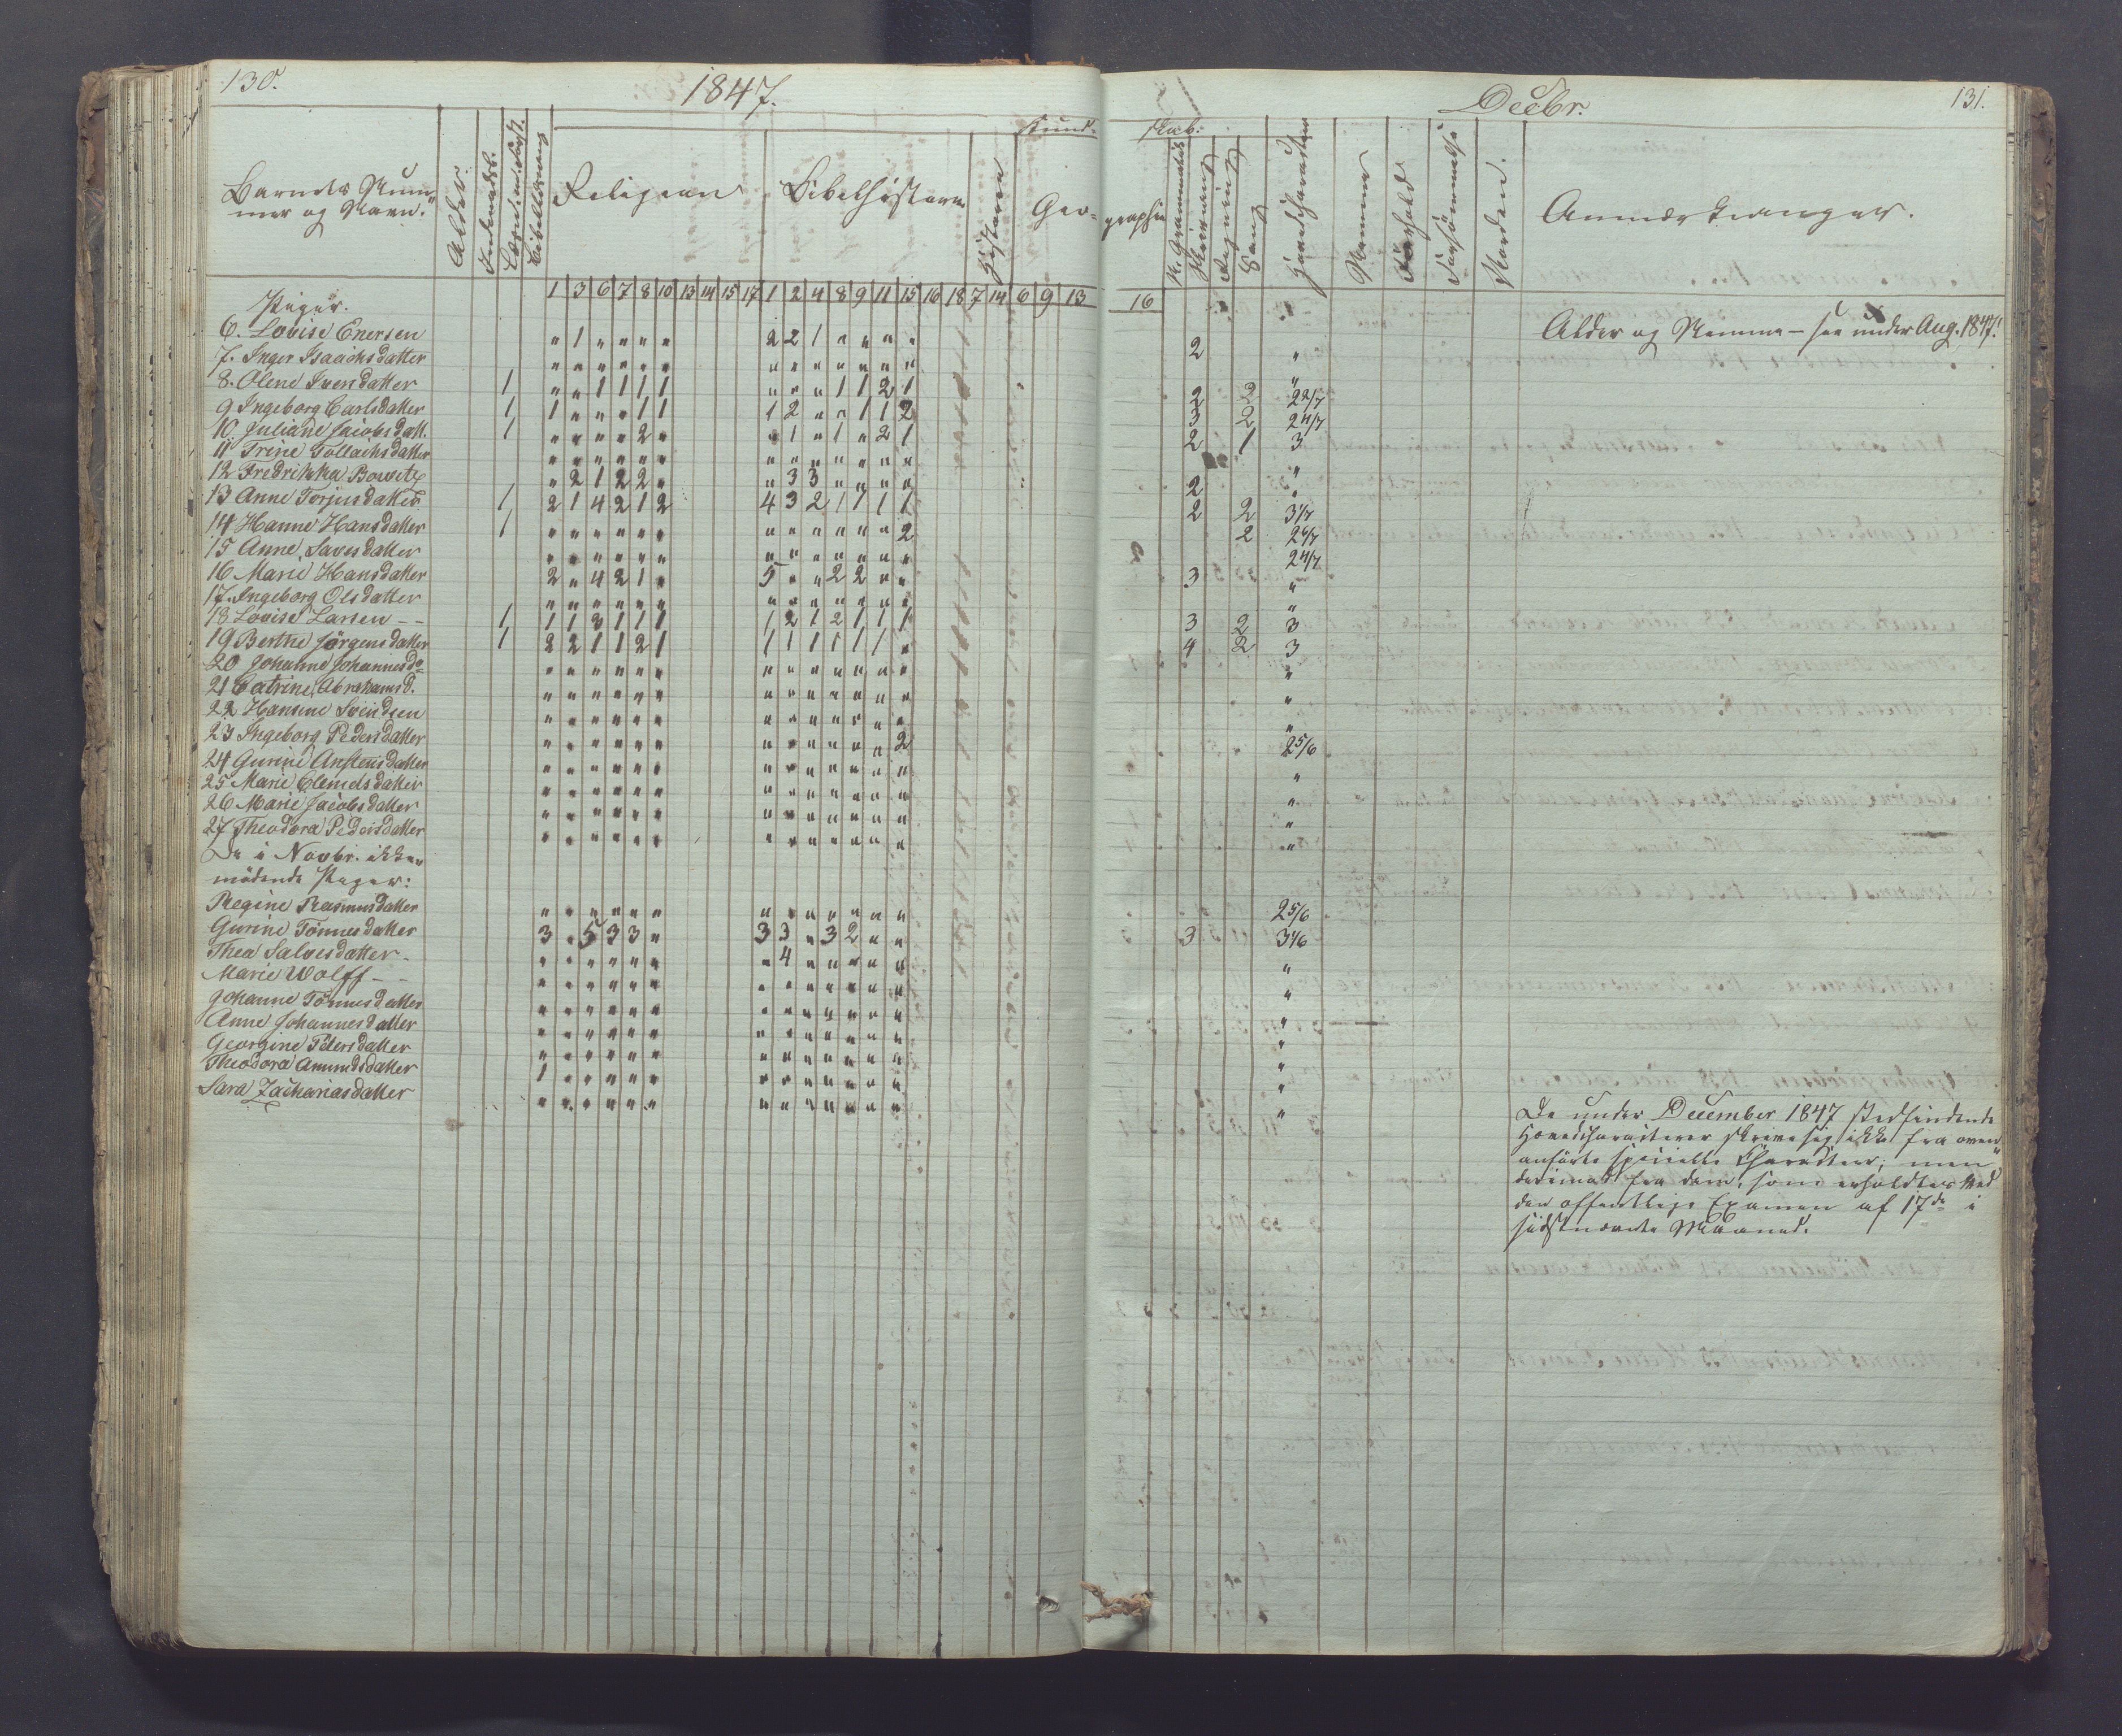 130.
1847.
Decbr.
131.
Kund-
skab:
Barnets Num-
mer og Navn.
Alder.
Religion
Bibelhistorie
Historie
Geo-
graphie
Skrivning
Regning
Sang
Hovedcharacteer
Nemme
Forhold
Forsömmelse
Anmærkninger.
1 3 6 7 8 10 13 14 15 17 1 2 4 8 9 11 15 16 18 7 14 6 9 13
16
Piger.
6. Lovise Enersen " 1 " " " " 2 2 1 " " " " 2 "
Alder og Nemme – see under Aug. 1847.
7. Inger Isaachsdatter " " " " " " " " " " " " " "
8. Olene Iversdatter 1 " " 1 1 1 1 " " " 1 1 2 1 2 2 22/7
9 Ingeborg Carlsdatter 1 1 " " " 1 1 1 2 " " 1 1 2 3 2 24/7
10. Juliane Jacobsdatt. 1 " " " " 2 " " 1 " 1 " 2 1 2 1 3
11 Trine Tollachsdatter " " " " " " " " " " " " " "
12 Fredrikka Bowitz " 2 1 2 2 " " 3 3 " " " " 2 "
13 Anne Torjusdatter 1 2 1 4 2 1 2 4 3 2 1 1 1 1 2 2 31/7
14 Hanne Hansdatter 1 " " " " " " " " " " " " 2 2 26/7
15 Anne Savesdatter " " " " " " " " " " " " " 24/7
16 Marie Hansdatter 2 " 4 2 1 " 5 " " 2 2 " " 3 "
17. Ingeborg Olsdatter " " " " " " " " " " " " " "
18 Lovise Larsen – – 1 1 1 3 1 1 1 1 2 1 2 1 1 1 3 2 3
19 Berthe Jörgensdatter 1 2 2 1 1 2 1 1 1 1 1 1 1 " 4 2 3
20 Johanne Johannesdr " " " " " " " " " " " " " "
21 Catrine Abrahamsd. " " " " " " " " " " " " " "
22 Hansine Svendsen " " " " " " " " " " " " " "
23 Ingeborg Pedersdatter " " " " " " " " " " " " 2 25/6
24 Gurine Anstensdatter " " " " " " " " " " " " " "
25 Marie Clemetsdatter " " " " " " " " " " " " " "
26 Marie Jacobsdatter " " " " " " " " " " " " " "
27 Theodora Pedersdatter " " " " " " " " " " " " " "
De i Novbr. ikke
mödende Piger:
Regine Rasmusdatter " " " " " " " " " " " " " 25/6
Gurine Tönnesdatter 3 " 5 3 3 " 3 3 " 3 2 " " 3 31/6
Thea Salvesdatter – " " " " " " " 4 " " " " " "
Marie Wolff – – " " " " " " " " " " " " " "
Johanne Tönnesdatter " " " " " " " " " " " " " "
Anne Johannesdatter " " " " " " " " " " " " " "
Georgine Petersdatter " " " " " " " " " " " " " "
Theodora Amundsdatter 1 " " " " " " " " " " " " "
Sara Zachariasdatter " " " " " " " " " " " " " "
De under December 1847 stedfindende
Hovedcharacterer skrive sig ikke fra oven-
anförte specielle Characterer; men
derimod fra dem, som erholdtes ved
den offentlige Examen af 17de i
sidstnævnte Maaned.